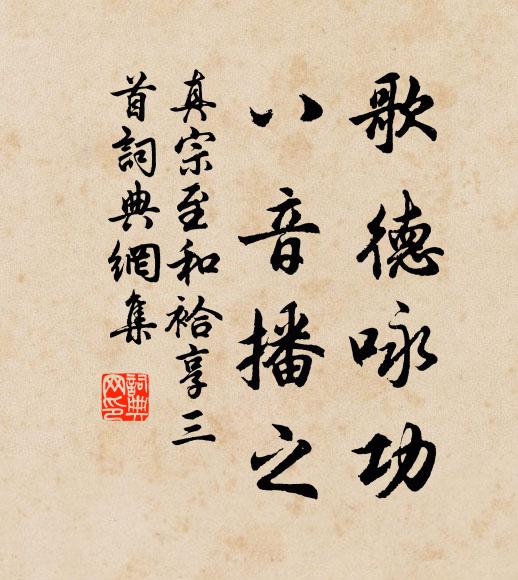 歌德咏功
八音播之
真宗至和祫享三
首詞典網集
詞典
网印